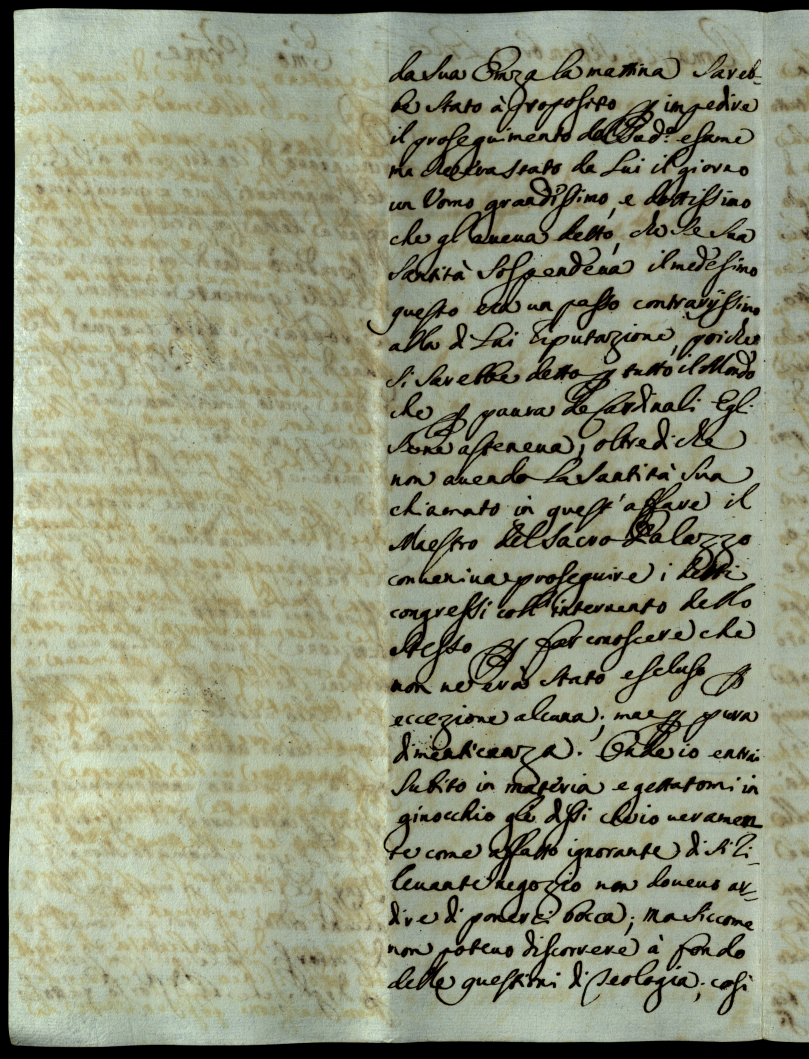 da Sua Emza la mattina Sareb-
be stato à proposito p impedire
il proseguimento del Sudo. esame
ma che era stato da Lui il giorno
un Uomo grandissimo, e dottissimo
che gl'aueua detto, che se Sua
Santità Sospendeua il medesimo
questo era un passo contrarijssimo
alla di Lui riputazione, poiche
si sarebbe detto p tutto il Mondo
che p paura de Cardinali Egli
se ne asteneua; oltre di che
non auendo La Santità Sua
chiamato in quest'affare il
Maestro del Sacro Palazzo
conueniua proseguire i detti
congressi coll'interuento dello
stesso p far conoscere che
non ne era stato escluso p
eccezione alcuna, ma p pura
dimenticanza. Onde io entrai
subito in materia e gettatomi in
ginocchio gli dissi che io ueramen
te come affatto ignorante di si ri-
leuante negozio non doueuo ar-
dire di ponerci bocca; ma siccome
non poteuo discorrere à fondo
delle questioni di Teologia, così